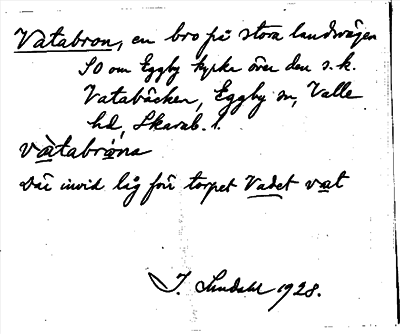 Vatabron, en bro på stora landsvägen
SO om Eggby kyrka över den s.k.
Vatabäcken, Eggby sn, Valle
hd, Skarab. l.
vàtabrǿna
Där invid låg förr torpet Vadet vat
J. Sundahl 1928.